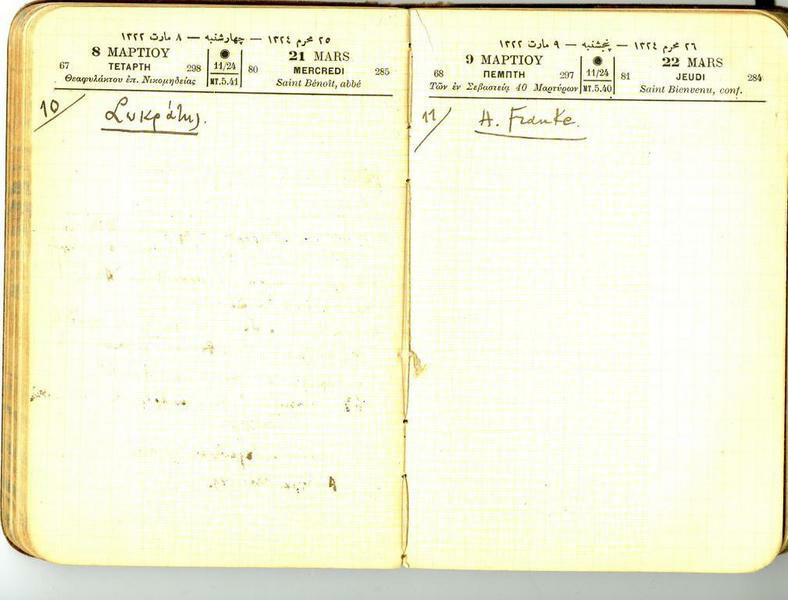 ٢٥ محرم ١٣٢٤ — چهارشنبه — ٨ مارت ١٣٢٢
8 ΜΑΡΤΙΟΥ
67 ΤΕΤΑΡΤΗ 298
Θεοφυλάκτου ἐπ. Νικομηδείας
11/24
ΜΤ.5.41
21 MARS
80 MERCREDI 285
Saint Bénoît, abbé
10 Σωκράτης.
٢٦ محرم ١٣٢٤ — پنجشنبه — ٩ مارت ١٣٢٢
9 ΜΑΡΤΙΟΥ
68 ΠΕΜΠΤΗ 297
Τῶν ἐν Σεβαστείᾳ 40 Μαρτύρων
11/24
ΜΤ.5.40
22 MARS
81 JEUDI 284
Saint Bienvenu, conf.
11 A. Franke.